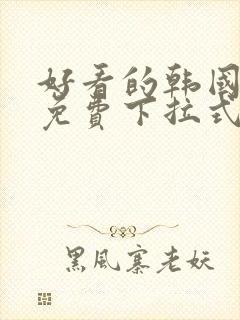 好看的韩国
免費下拉式
黑風寨老妖